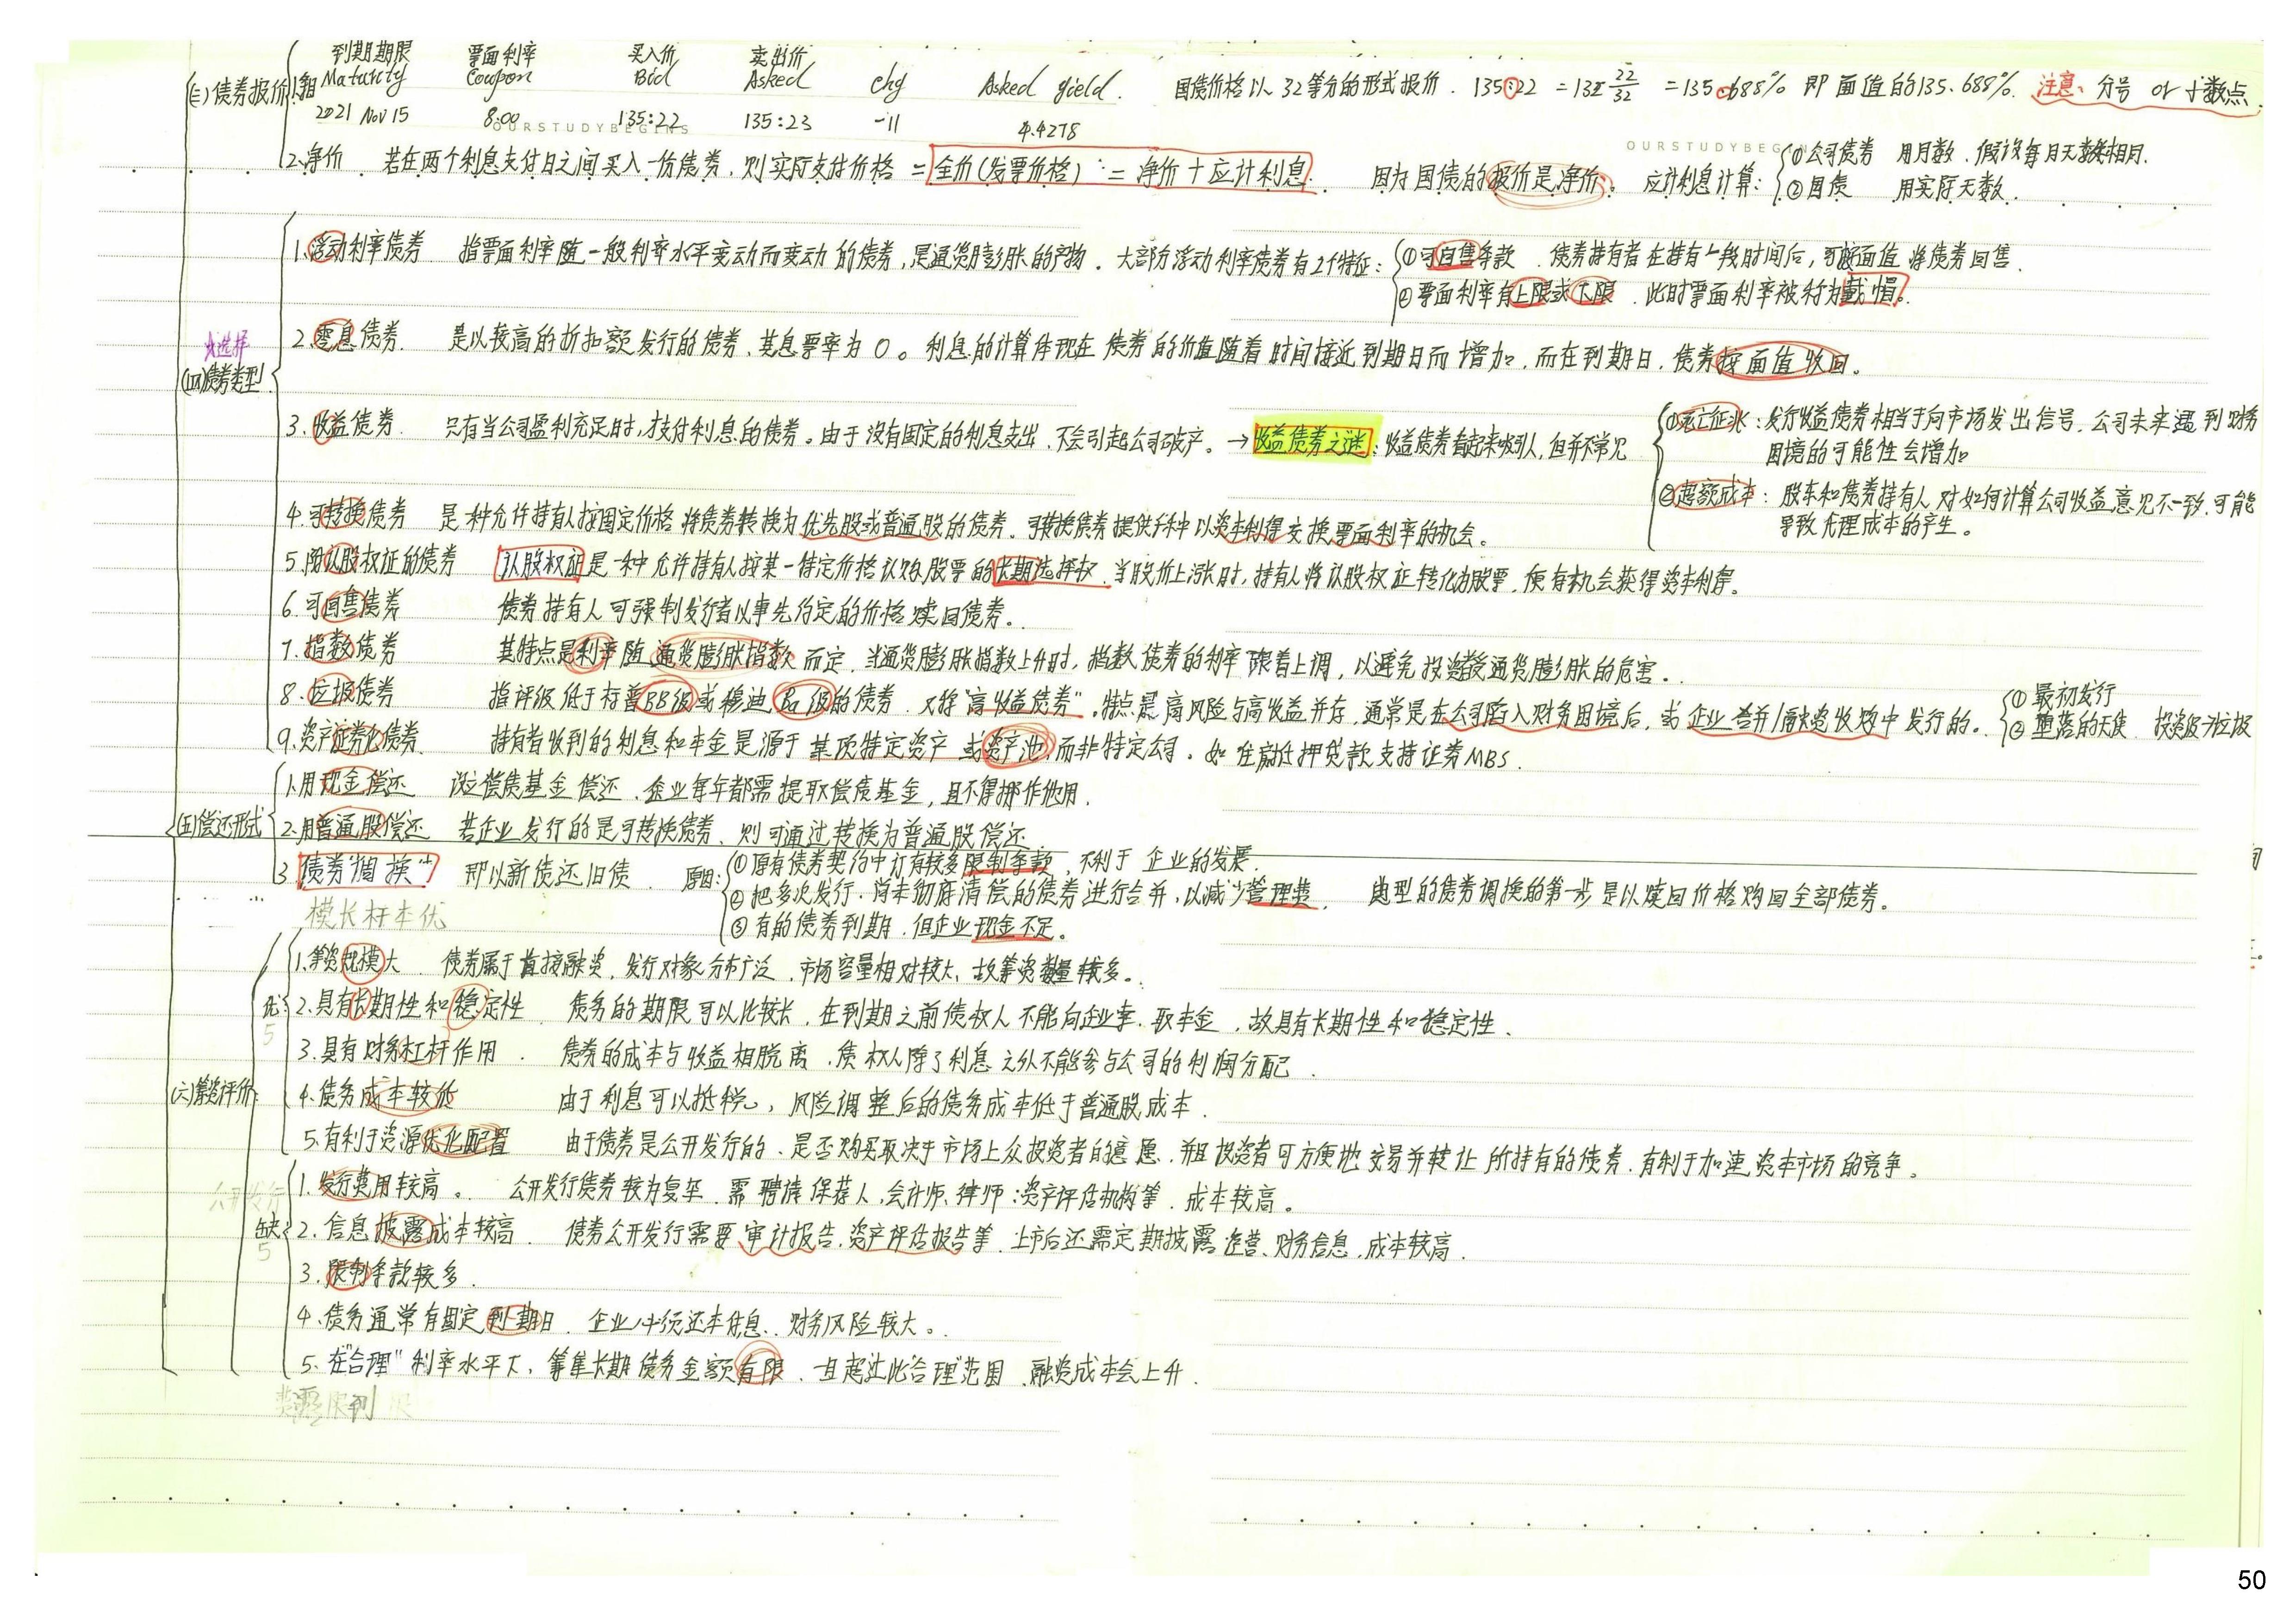 到期期限 票面利率 买入价 卖出价
(三)债券报价 1. Maturity Coupon Bid Asked chg Asked yield. 国债价格以32等分的形式报价. 135:22 = 135 22/32 = 135.688% 即面值的135.688%. 注意: 分号 or 小数点;
2021 Nov 15 8.00 135:22 135:23 -11 4.4278
OURSTUDYBEGINS
OURSTUDYBEGIN
2.净价 若在两个利息支付日之间买入一份债券,则实际支付价格 = 全价(发票价格) = 净价+应计利息. 因为国债的报价是净价。 应计利息计算: ①公司债券 用月数.假设每月天数相同.
②国债 用实际天数.
1.浮动利率债券 指票面利率随一般利率水平变动而变动的债券,是通货膨胀的产物.大部分浮动利率债券有2个特征: ①可回售条款.债券持有者在持有一段时间后,可按面值将债券回售.
②票面利率有上限或下限.此时票面利率被称为戴帽。
选择
2.零息债券. 是以较高的折扣额发行的债券、其息票率为0。利息的计算体现在债券的价值随着时间接近到期日而增加.而在到期日.债券按面值收回。
(四)债券类型
3.收益债券. 只有当公司盈利充足时,才支付利息的债券。由于没有固定的利息支出.不会引起公司破产。→收益债券之谜:收益债券看起来吸引人,但并不常见 ①死亡征兆:发行收益债券相当于向市场发出信号.公司未来遇到财务
困境的可能性会增加
②超额成本:股东和债券持有人对如何计算公司收益意见不一致.可能
导致代理成本的产生。
4.可转换债券 是一种允许持有人按固定价格将债券转换为优先股或普通股的债券.可转换债券提供了种以资本利得交换票面利率的机会。
5.附认股权证的债券 认股权证是一种允许持有人按某一特定价格认购股票的长期选择权.当股价上涨时,持有人将认股权证转化为股票,便有机会获得资本利得。
6.可回售债券 债券持有人可强制发行者以事先约定的价格赎回债券.
7.指数债券 其特点是利率随通货膨胀指数而定.当通货膨胀指数上升时,指数债券的利率跟着上调,以避免投资者受通货膨胀的危害.
8.垃圾债券 指评级低于标普BB级或穆迪Ba级的债券.又称"高收益债券".特点是高风险与高收益并存,通常是在公司陷入财务困境后,或企业合并/融资收购中发行的. ①最初发行
②堕落的天使 投资级→垃圾
9.资产证券化债券. 持有者收到的利息和本金是源于某项特定资产或资产池,而非特定公司.如住房抵押贷款支持证券MBS.
1.用现金偿还 设立偿债基金偿还.企业每年都需提取偿债基金,且不得挪作他用.
(五)偿还形式 2.用普通股偿还 若企业发行的是可转换债券、则可通过转换为普通股偿还
3.债券"调换" 即以新债还旧债. 原因: ①原有债券契约中订有较多限制条款,不利于企业的发展.
②把多次发行.尚未彻底清偿的债券进行合并,以减少管理费. 典型的债券调换的第一步是以赎回价格购回全部债券。
③有的债券到期.但企业现金不足。
模长杆本优
1.筹资规模大. 债券属于直接融资,发行对象分布广泛.市场容量相对较大、故筹资数量较多。
优: 2.具有长期性和稳定性 债务的期限可以比较长.在到期之前债权人不能向企业索取本金,故具有长期性和稳定性.
5
3.具有财务杠杆作用. 债券的成本与收益相脱离.债权人除了利息之外不能参与公司的利润分配.
(六)筹资评价: 4.债务成本较低 由于利息可以抵税,风险调整后的债务成本低于普通股成本.
5.有利于资源优化配置 由于债券是公开发行的、是否购买取决于市场上众投资者的意愿.并且投资者可方便地交易并转让所持有的债券.有利于加速资本市场的竞争。
公开发行
1.发行费用较高. 公开发行债券较为复杂.需聘请保荐人.会计师.律师.资产评估机构等.成本较高。
缺: 2.信息披露成本较高. 债券公开发行需要审计报告.资产评估报告等.上市后还需定期披露运营、财务信息.成本较高.
5
3.限制条款较多.
4.债务通常有固定到期日.企业必须还本付息.财务风险较大。
5.在"合理"利率水平下,筹集长期债务金额有限.且超过此"合理"范围.融资成本会上升.
50